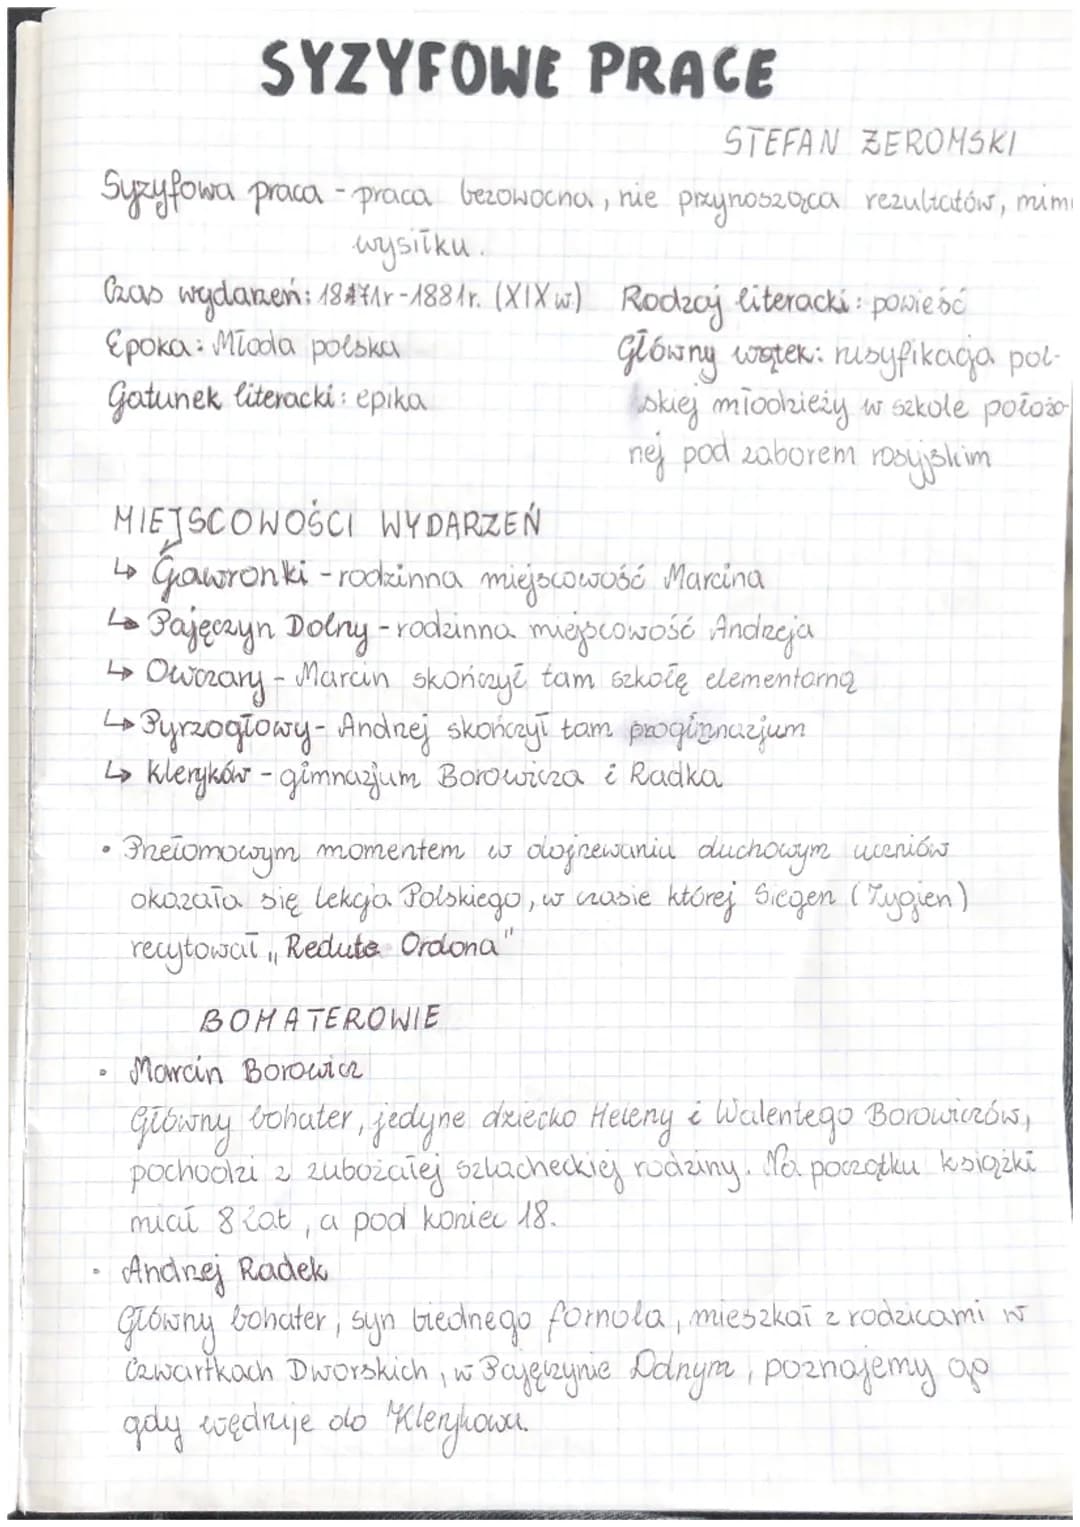 SYZYFOWE PRACE
STEFAN ŻEROMSKI
Syzyfowa praca - praca bezowocna, nie przynosząca rezultatów, mimo
wysiłku.
Czas wydarzeń: 1871r - 1881r. (XIX w.) Rodzaj literacki: powieść
Epoka: Młoda polska Główny wątek: rusyfikacja pol-
Gatunek literacki: epika skiej młodzieży w szkole położo-
nej pod zaborem rosyjskim
MIEJSCOWOŚCI WYDARZEŃ
↳ Gawronki - rodzinna miejscowość Marcina
↳ Pajęczyn Dolny - rodzinna miejscowość Andrzeja
↳ Owczary - Marcin skończył tam szkołę elementarną
↳ Pyrzogłowy - Andrzej skończył tam progimnazjum
↳ Kleryków - gimnazjum Borowicza i Radka
• Przełomowym momentem w dojrzewaniu duchowym uczniów
okazała się lekcja Polskiego, w czasie której Siegen (Zygien)
recytował „Redute Ordona"
BOHATEROWIE
• Marcin Borowicz
Główny bohater, jedyne dziecko Heleny i Walentego Borowiczów,
pochodzi z zubożałej szlacheckiej rodziny. Na początku książki
miał 8 lat, a pod koniec 18.
• Andrzej Radek
Główny bohater, syn biednego fornola, mieszkał z rodzicami w
Czwartkach Dworskich, w Pajęczynie Dolnym, poznajemy go
gdy wędruje do Klerykowa.